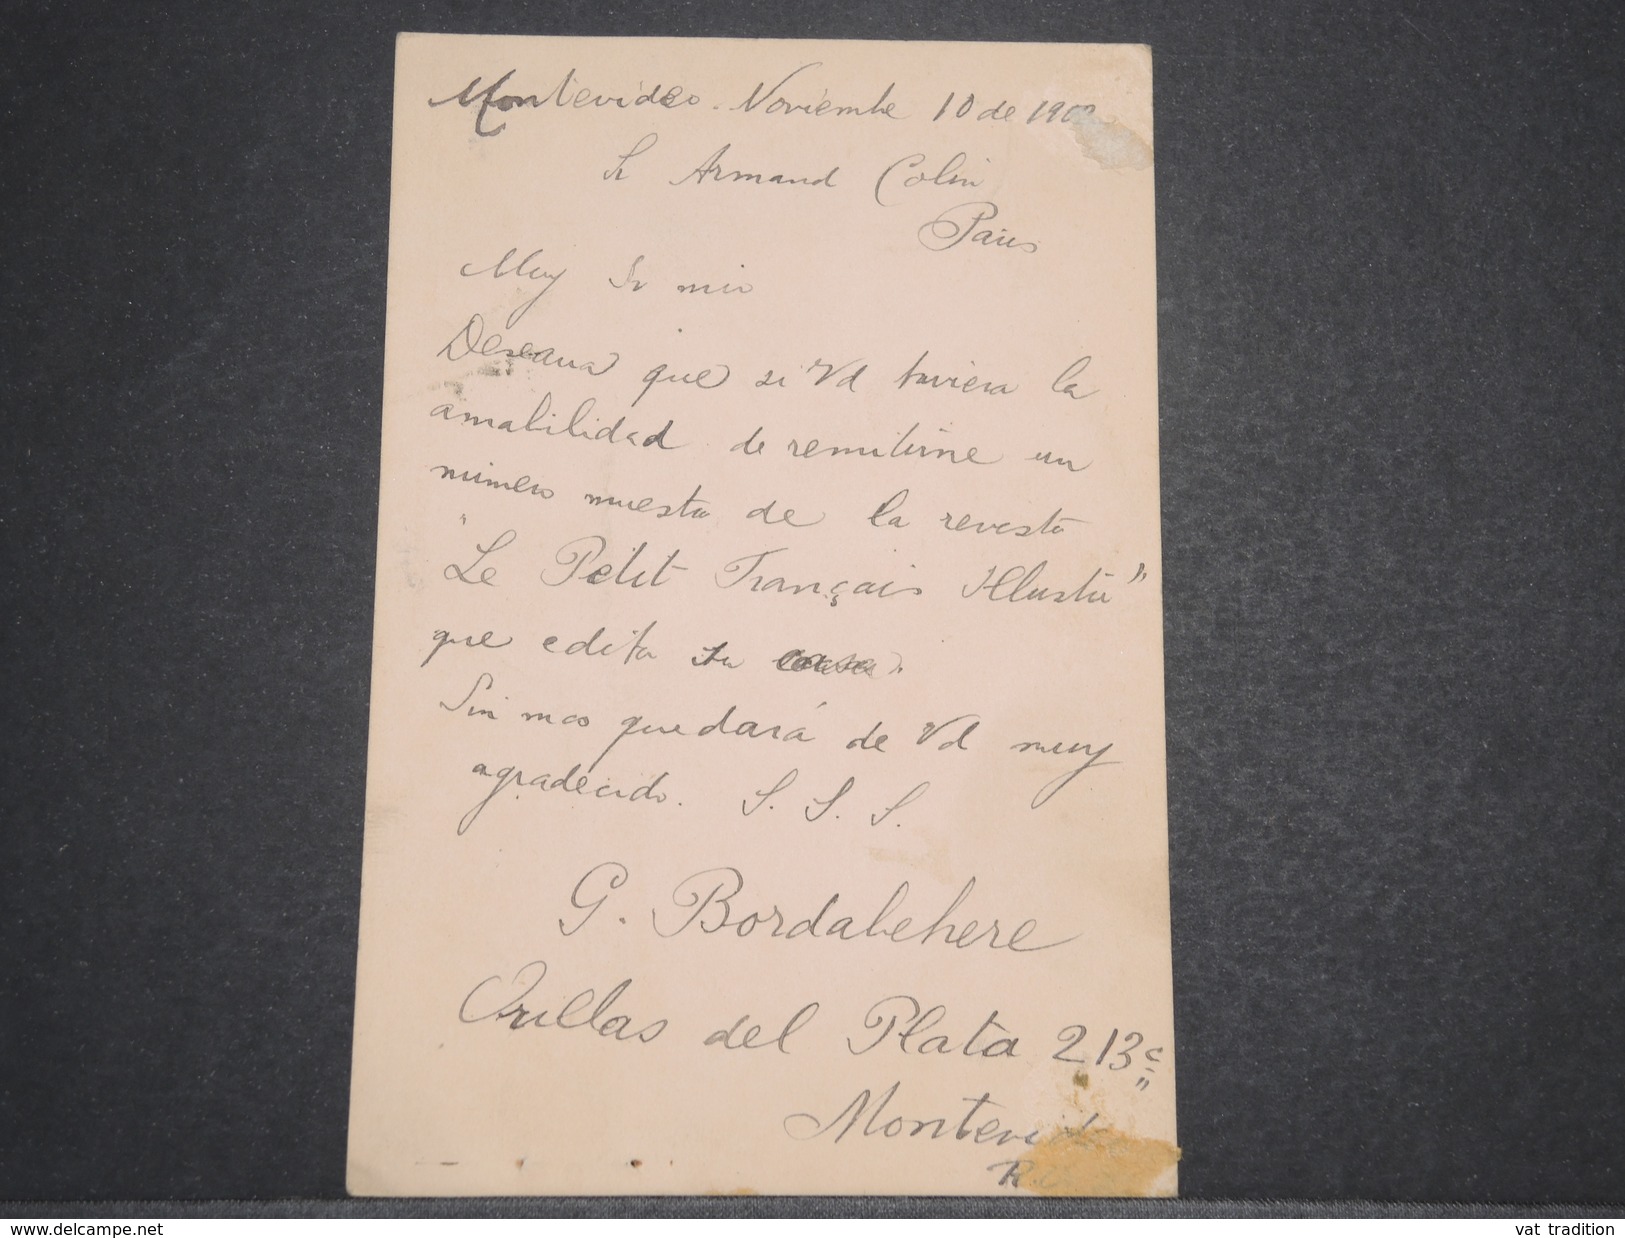 Montevideo. Noviembre 10 de 190
Sr Armand Colin
Paris
Muy Sr mio
Desearia que si Vd tuviera la
amabilidad de remitirme un
número muestra de la revista
"Le Petit Français Illustré"
que edita su casa.
Sin mas quedará de Vd muy
agradecido. S. S. S.
G. Bordabehere
Orillas del Plata 213c
Montevideo
R.
delcampe.net
vat_tradition